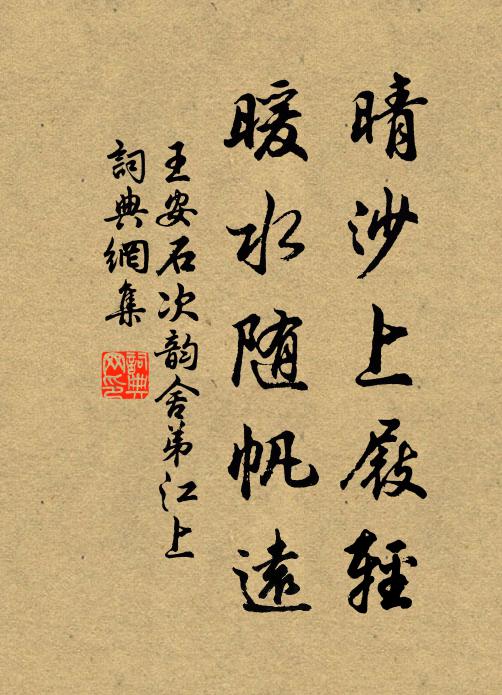 晴沙上屐輕
暖水随帆遠
王安石次韵舍弟江上
詞典網集
詞典网印